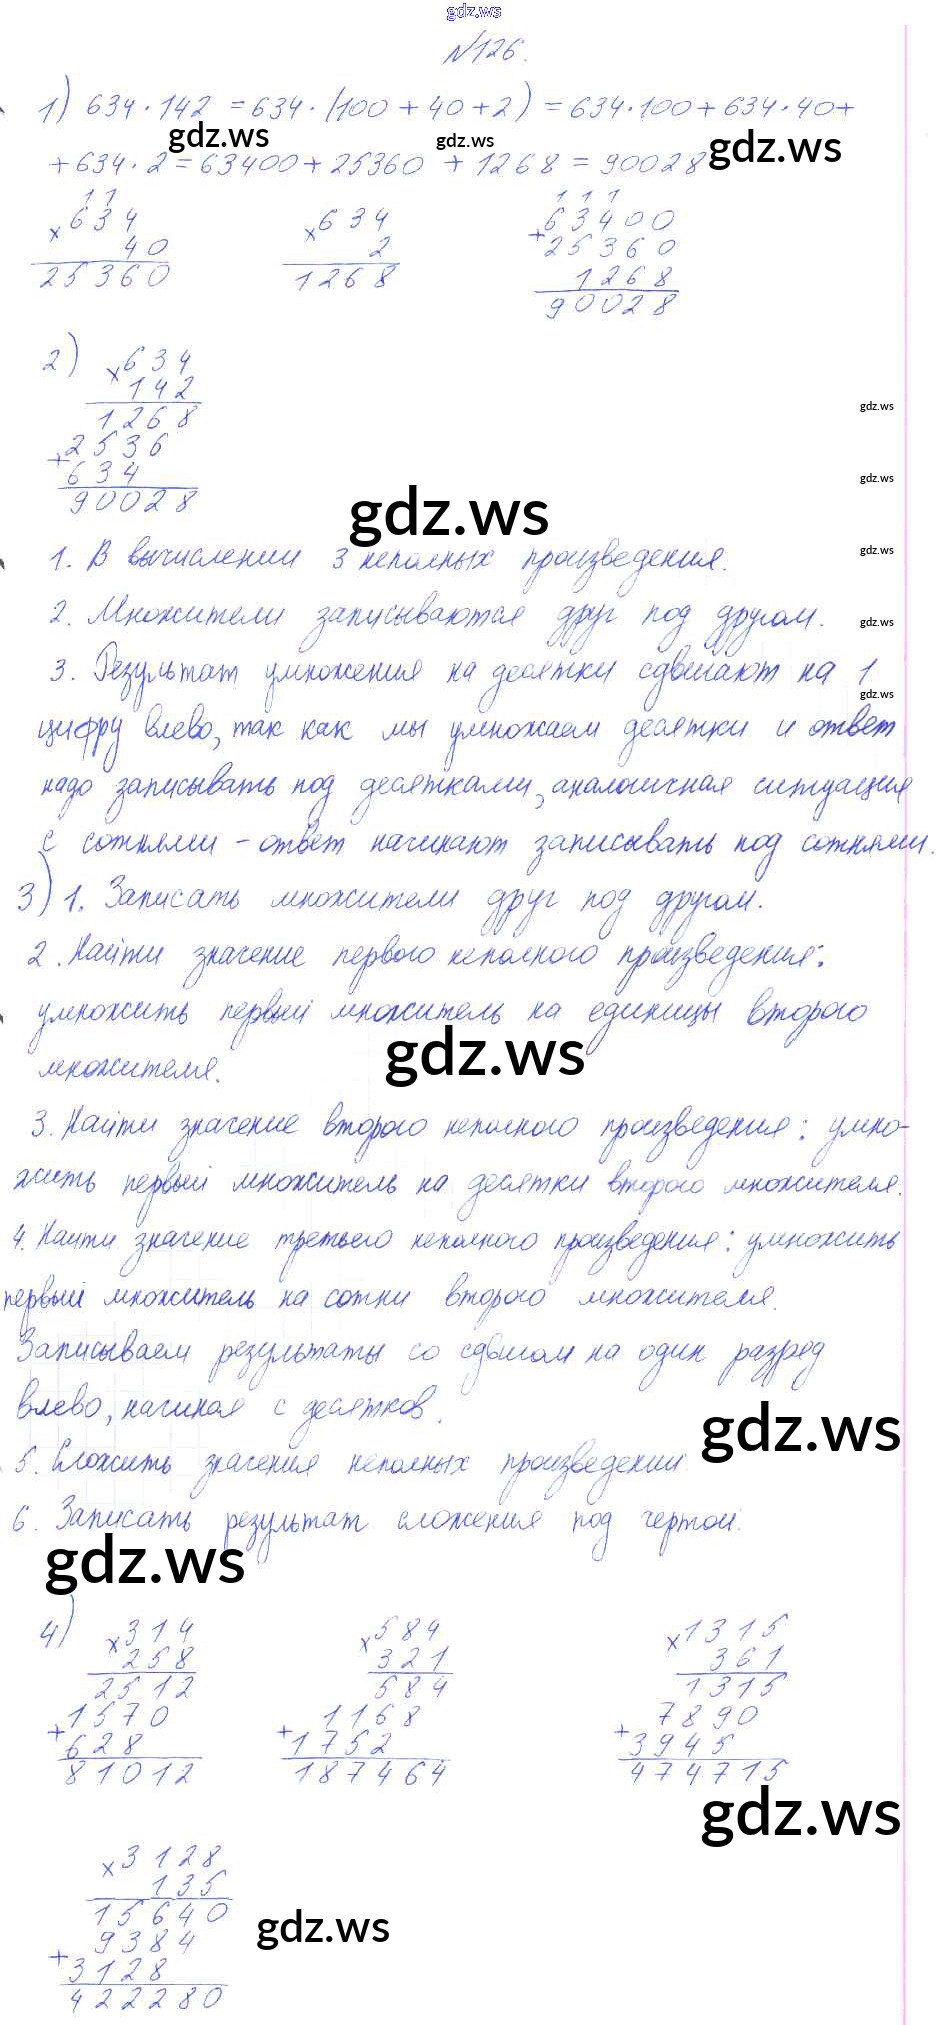 gdz.ws
№126.
1) 634·142 = 634·(100 + 40 + 2) = 634·100 + 634·40 +
gdz.ws gdz.ws gdz.ws
+ 634·2 = 63400 + 25360 + 1268 = 90028
1 1 1 1 1
× 634 × 634 63400
40 2 + 25360
25360 1268 1268
90028
2) × 634
142
1268
gdz.ws
+ 2536
634
gdz.ws
90028
gdz.ws
1. В вычислении 3 неполных произведения.
gdz.ws
2. Множители записываются друг под другом.
gdz.ws
3. Результат умножения на десятки сдвигают на 1
gdz.ws
цифру влево, так как мы умножаем десятки и ответ
надо записывать под десятками, аналогичная ситуация
с сотнями – ответ начинают записывать под сотнями.
3) 1. Записать множители друг под другом.
2. Найти значение первого неполного произведения:
умножить первый множитель на единицы второго
gdz.ws
множителя.
3. Найти значение второго неполного произведения: умно-
жить первый множитель на десятки второго множителя.
4. Найти значение третьего неполного произведения: умножить
первый множитель на сотни второго множителя.
Записываем результаты со сдвигом на один разряд
влево, начиная с десятков.
gdz.ws
5. Сложить значения неполных произведений
6. Записать результат сложения под чертой.
gdz.ws
4) × 314 × 584 × 1315
258 321 361
2512 584 1315
+ 1570 1168 7890
628 + 1752 + 3945
81012 187464 474715
gdz.ws
× 3128
135
15640
gdz.ws
9384
+ 3128
422280